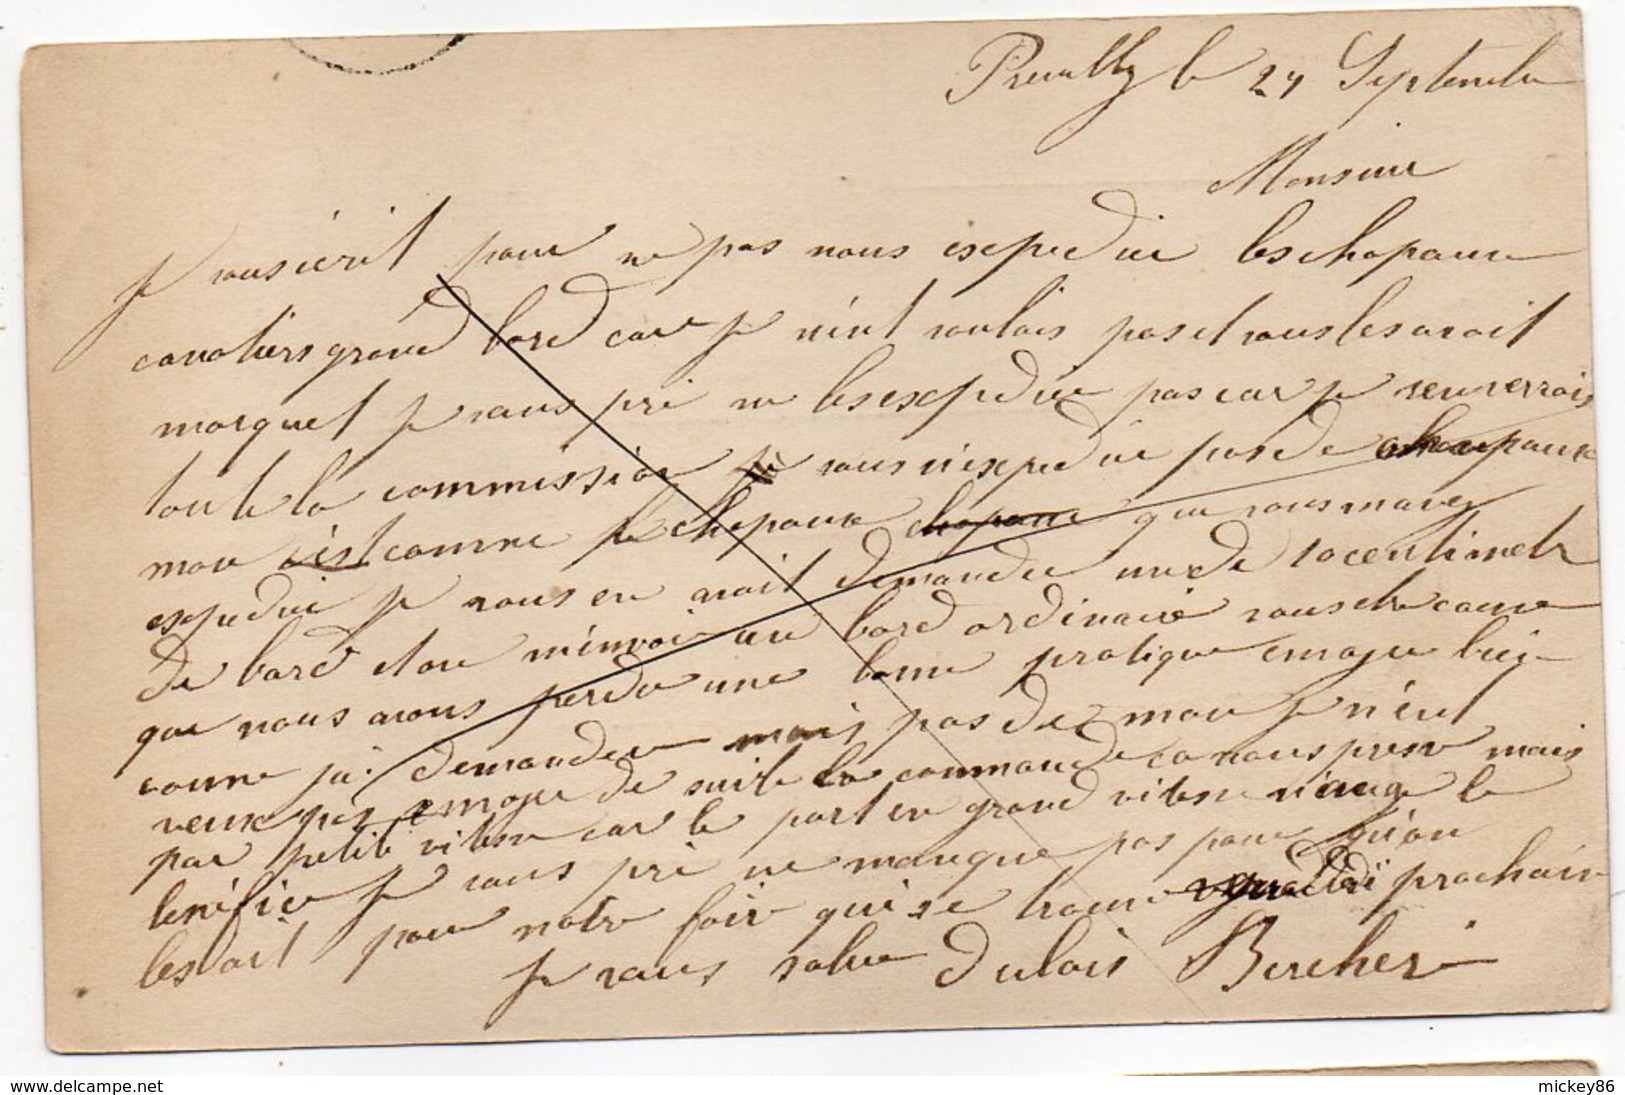 Preuilly le 24 Septembre
Monsieur
Je vous écrit pour ne pas nous expedier les chapaux
cavaliers grand bord car je n'ent voulais pas et vous les avait
marquet je vous pri ne les expedier pas car je renverrais
toute la commission je vous n'expedie pas de chapaux
mou c'est comme le chepaux chapaux que vous mavez
expedier je vous en avait demander un de 10 centimetr
de bord et on m'envoie un bord ordinaire vous etre cause
que nous avons perdu une bonne pratique emoyer bien
comme jai demander mais pas de mou je n'ent
veux pas emoyer de suite la commande ca nous presse mais
par petite vitesse car le port en grand vitesse mange le
bénéfice je vous pri ne manque pas pour qu'on
les ait pour notre foire qui se trouve vendredi prochain
Je vous salue Dulois Bercher
delcampe.net
mickey86